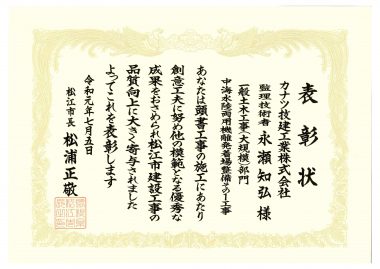 表彰状
カナツ技建工業株式会社
監理技術者 永瀬知弘 様
一般土木工事(大規模)部門
中海水陸両用機離発着場整備その一工事
あなたは頭書工事の施工にあたり
創意工夫に努め他の模範となる優秀な
成果をおさめられ松江市建設工事の
品質向上に大きく寄与されました
よってこれを表彰します
令和元年七月五日
松江市長 松浦正敬